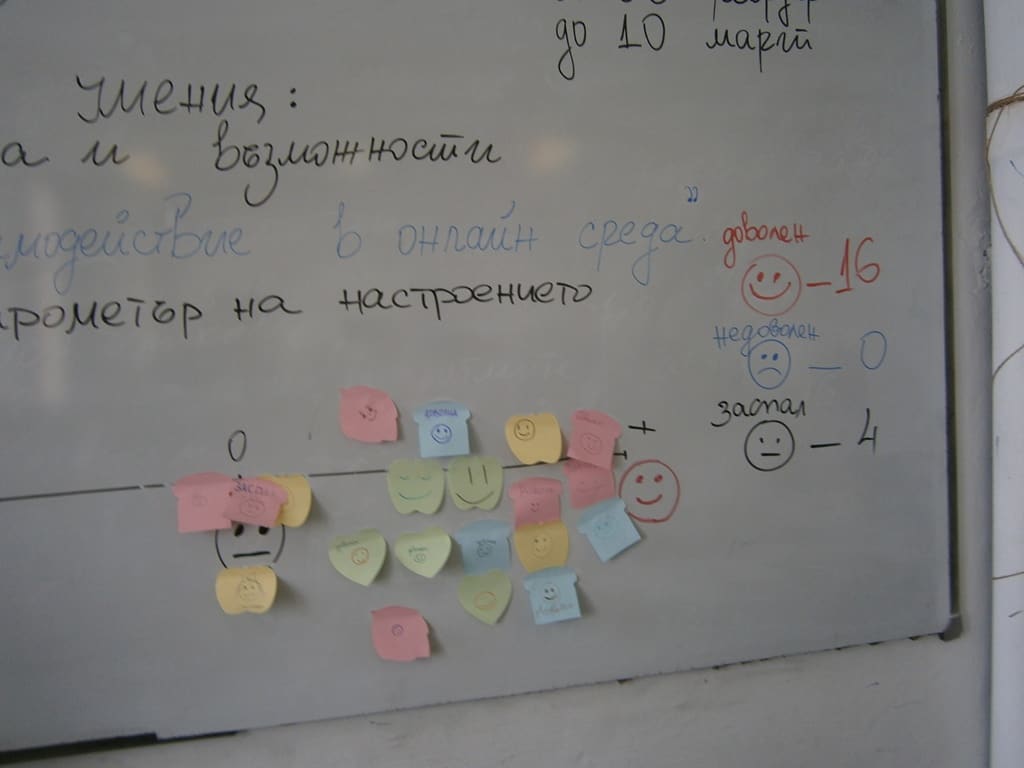 до 10 март
Умения:
а и възможности
модействие в онлайн среда"
доволен
рометър на настроението
– 16
недоволен
– 0
заспал
– 4
0
+
ЗАСПАЛ